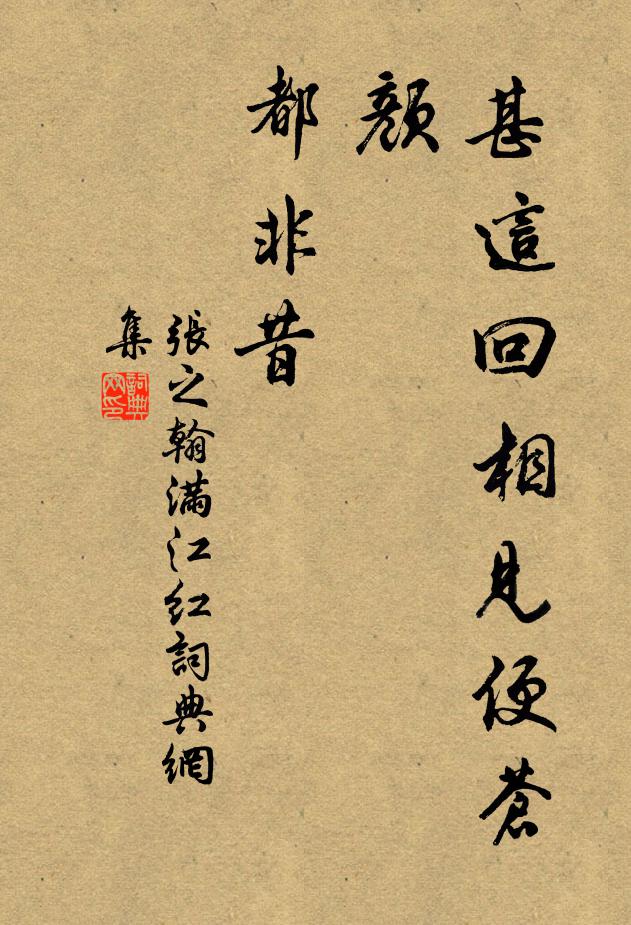 甚這回相見便蒼
顏
都非昔
張之翰滿江紅詞典網
集
詞典網印